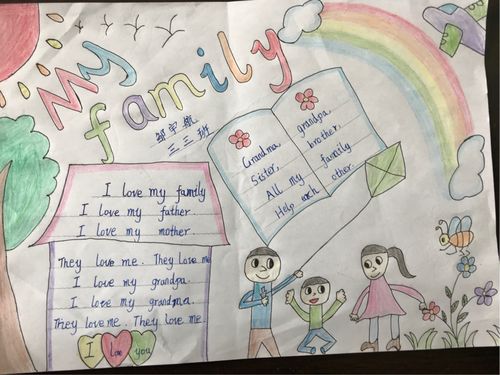 My
family
邹宇航
三三班
I love my family
I love my father.
I love my mother.
They love me. They love me
I love my grandpa.
I love my grandma.
They love me. They love me.
I love you
Grandma
Sister.
All my
Help each
grandpa
brother.
family
other.